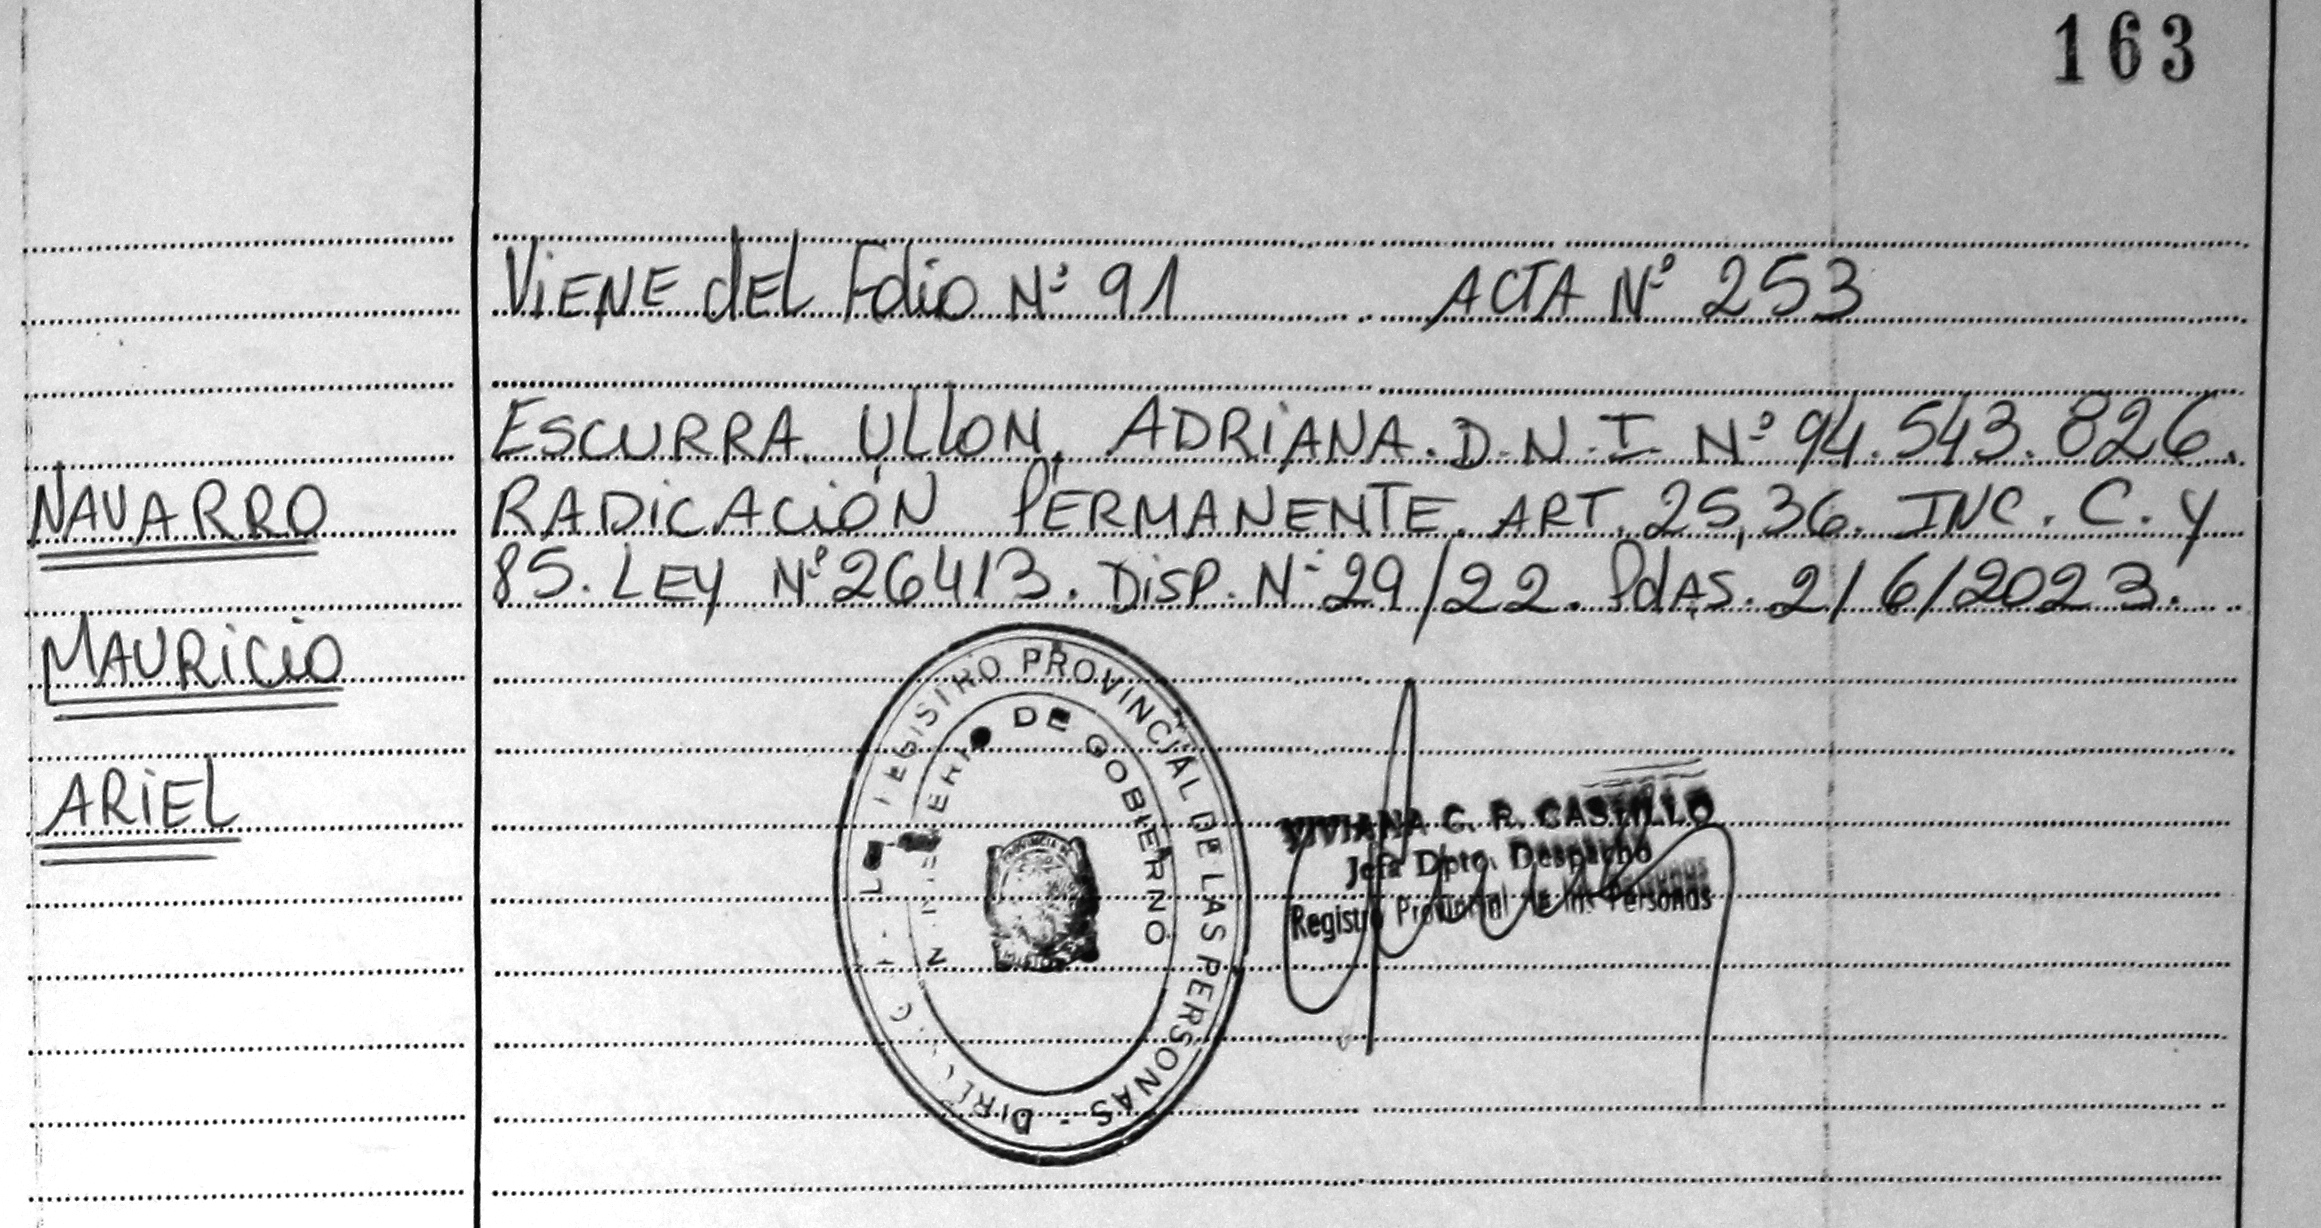 163
Viene del Folio Nº 91 ACTA Nº 253
ESCURRA ULLON, ADRIANA. D.N.I. Nº 94.543.826.
NAVARRO
RADICACIÓN PERMANENTE. ART. 25,36. INC. C. y
85. LEY Nº 26413. DISP. Nº 29/22. PdAS. 2/6/2023.
MAURICIO
ARIEL
REGISTRO PROVINCIAL DE LAS PERSONAS -
DE GOBIERNO
VIVIANA C. R. CASTILLO
Jefa Dpto. Despacho
Registro Provincial de las Personas